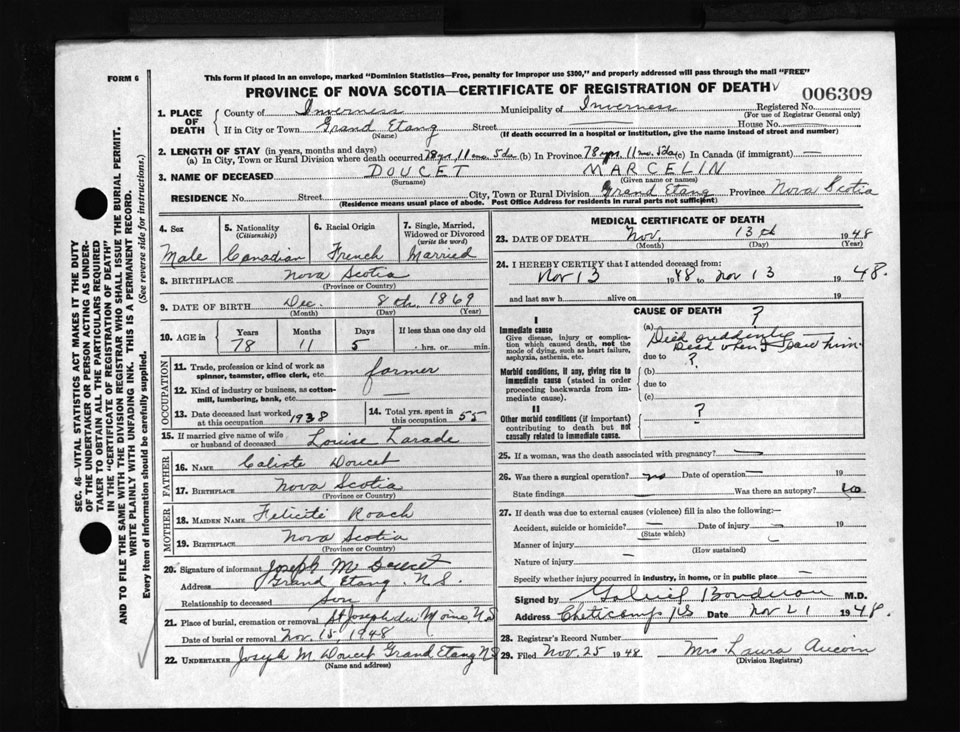 FORM 6
This form if placed in an envelope, marked "Dominion Statistics—Free, penalty for improper use $300," and properly addressed will pass through the mail "FREE"
PROVINCE OF NOVA SCOTIA—CERTIFICATE OF REGISTRATION OF DEATH
006309
1. PLACE OF DEATH
County of Inverness Municipality of Inverness Registered No.
(For use of Registrar General only)
If in City or Town Grand Etang Street — House No.
(Name) (If death occurred in a hospital or institution, give the name instead of street and number)
2. LENGTH OF STAY (in years, months and days)
(a) In City, Town or Rural Division where death occurred 78 yrs, 11 mo. 5 da (b) In Province 78 yr. 11 mo. 5 da (c) In Canada (if immigrant) —
3. NAME OF DECEASED DOUCET MARCELIN
(Surname) (Given name or names)
RESIDENCE No. Street City, Town or Rural Division Grand Etang Province Nova Scotia
(Residence means usual place of abode. Post Office Address for residents in rural parts not sufficient)
4. Sex Male
5. Nationality (Citizenship) Canadian
6. Racial Origin French
7. Single, Married, Widowed or Divorced (write the word) Married
8. BIRTHPLACE Nova Scotia
(Province or Country)
9. DATE OF BIRTH Dec. 8th, 1869
(Month) (Day) (Year)
10. AGE in Years 78 Months 11 Days 5 If less than one day old
hrs. or min.
OCCUPATION
11. Trade, profession or kind of work as spinner, teamster, office clerk, etc. farmer
12. Kind of industry or business, as cotton-mill, lumbering, bank, etc. —
13. Date deceased last worked at this occupation 1938
14. Total yrs. spent in this occupation 55
15. If married give name of wife or husband of deceased Louise Larade
FATHER
16. NAME Caliste Doucet
17. BIRTHPLACE Nova Scotia
(Province or Country)
MOTHER
18. MAIDEN NAME Felicité Roach
19. BIRTHPLACE Nova Scotia
(Province or Country)
20. Signature of informant Joseph M Doucet
Address Grand Etang, N.S.
Relationship to deceased Son
21. Place of burial, cremation or removal St Joseph du Moine N.S
Date of burial or removal Nov. 15, 1948
22. UNDERTAKER Joseph M Doucet Grand Etang NS
(Name and address)
MEDICAL CERTIFICATE OF DEATH
23. DATE OF DEATH Nov. 13th 1948
(Month) (Day) (Year)
24. I HEREBY CERTIFY that I attended deceased from:
Nov 13 1948 to Nov 13 1948.
and last saw h alive on 19
CAUSE OF DEATH ?
I
Immediate cause
Give disease, injury or complication which caused death, not the mode of dying, such as heart failure, asphyxia, asthenia, etc.
(a) Died suddenly —
Dead when I saw him.
due to ?
Morbid conditions, if any, giving rise to immediate cause (stated in order proceeding backwards from immediate cause).
(b)
due to
(c)
II
Other morbid conditions (if important) contributing to death but not causally related to immediate cause.
?
25. If a woman, was the death associated with pregnancy? —
26. Was there a surgical operation? no Date of operation — 19
State findings — Was there an autopsy? no
27. If death was due to external causes (violence) fill in also the following:-
Accident, suicide or homicide? — Date of injury — 19
(State which)
Manner of injury —
(How sustained)
Nature of injury —
Specify whether injury occurred in industry, in home, or in public place —
Signed by Gabriel Boudreau M.D.
Address Cheticamp NS Date Nov 21 1948.
28. Registrar's Record Number
29. Filed Nov. 25 1948 Mrs Laura Aucoin
(Division Registrar)
SEC. 46—VITAL STATISTICS ACT MAKES IT THE DUTY
OF THE UNDERTAKER OR PERSON ACTING AS UNDER-
TAKER TO OBTAIN ALL THE PARTICULARS REQUIRED
IN THE "CERTIFICATE OF REGISTRATION OF DEATH"
AND TO FILE THE SAME WITH THE DIVISION REGISTRAR WHO SHALL ISSUE THE BURIAL PERMIT.
WRITE PLAINLY WITH UNFADING INK. THIS IS A PERMANENT RECORD.
Every item of information should be carefully supplied. (See reverse side for instructions.)